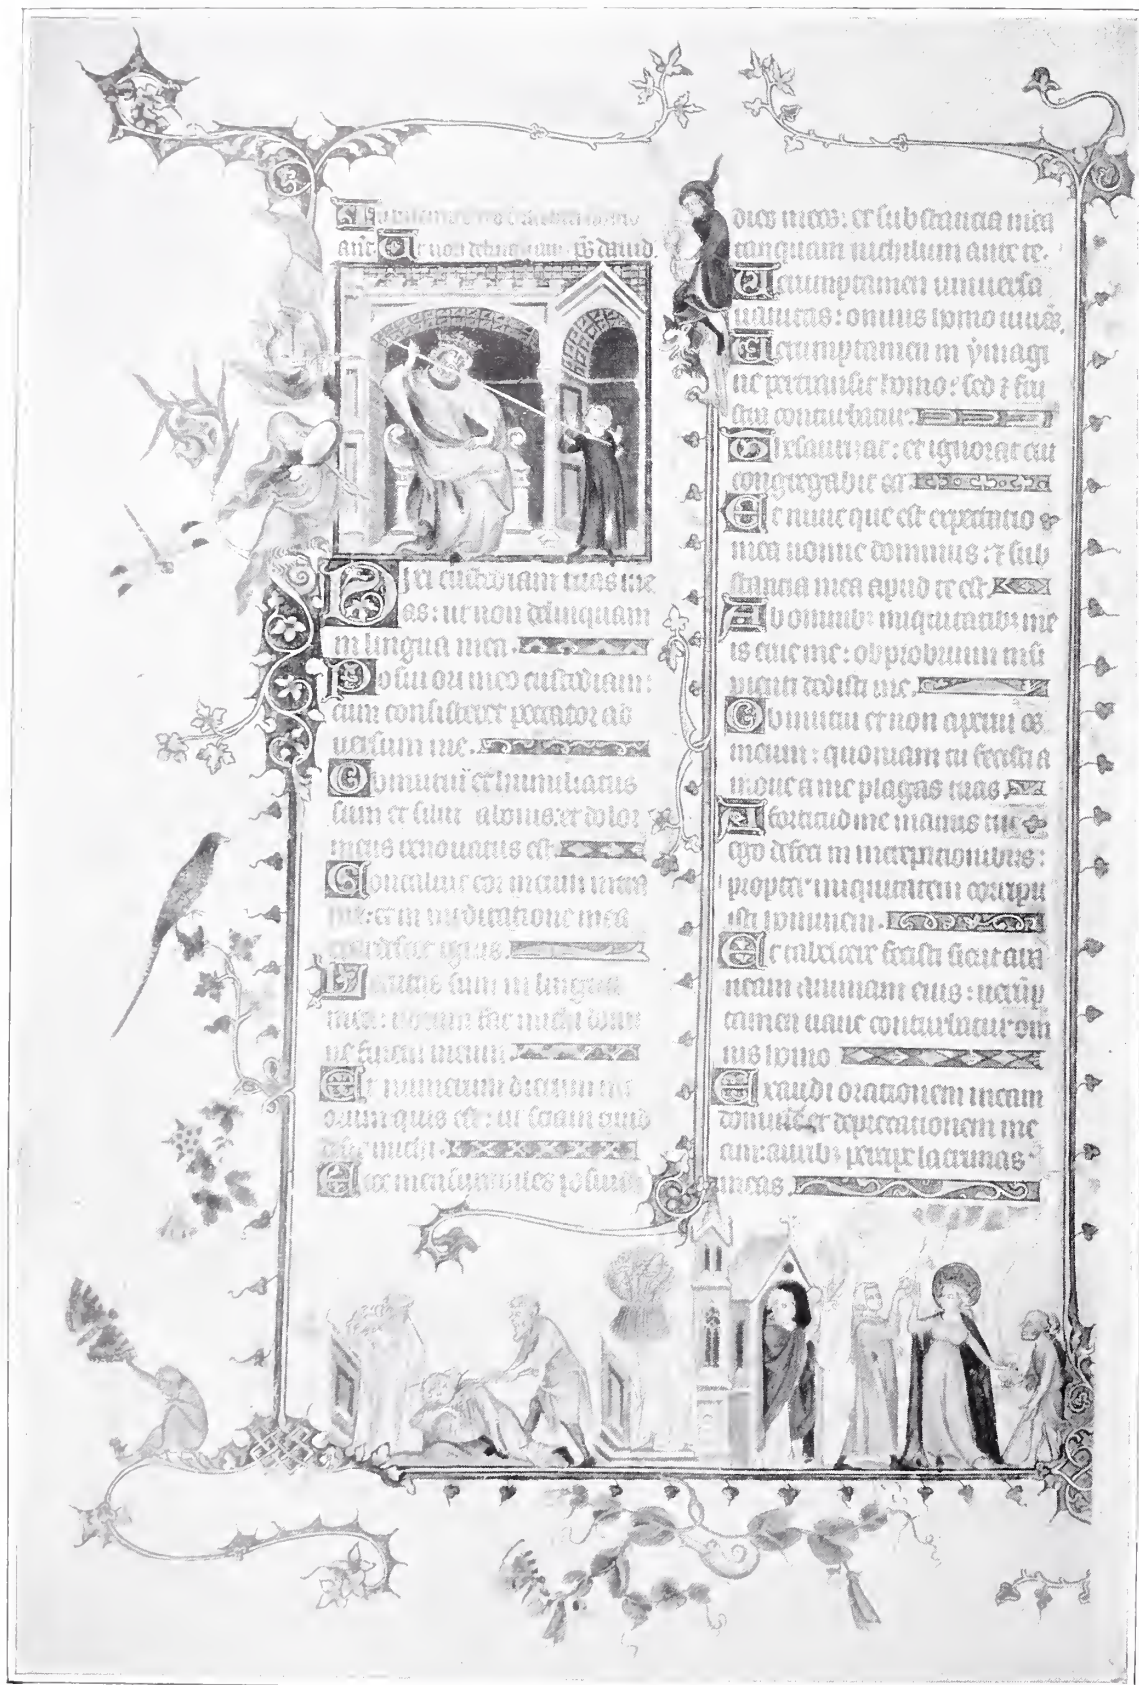 ant. Ut non delinquam. ps david.
Dixi custodiam vias me
as: ut non delinquam
in lingua mea.
Posui ori meo custodiam:
cum consisteret peccator ad
versum me.
Obmutui et humiliatus
sum et silui abonis: et dolor
meus renovatus est.
Concaluit cor meum intra
me: et in meditatione mea
exardescet ignis.
Locutus sum in lingua
mea: notum fac michi domi
ne finem meum.
Et numerum dierum me
orum quis est: ut sciam quid
desit michi.
Ecce mensurabiles posuisti
dies meos: et substancia mea
tanquam nichilum ante te.
Verumptamen universa
vanitas: omnis homo vivens.
Verumptamen in ymagi
ne pertransit homo: sed et frus
tra conturbatur:
Thesaurizat: et ignorat cui
congregabit ea.
Et nunc que est expectatio
mea nonne dominus: et sub
stancia mea apud te est.
Ab omnib: iniquitatib: me
is erue me: obprobrium insi
pienti dedisti me.
Obmutui et non aperui os
meum: quoniam tu fecisti a
move a me plagas tuas.
A fortitud me manus tue
ego defeci in increpationibus:
propter iniquitatem corripu
isti hominem.
Et tabescere fecisti sicut ara
neam animam eius: verup
tamen vane conturbatur om
nis homo
Exaudi orationem meam
domine et deprecationem me
am: aurib: percipe lacrimas
meas.